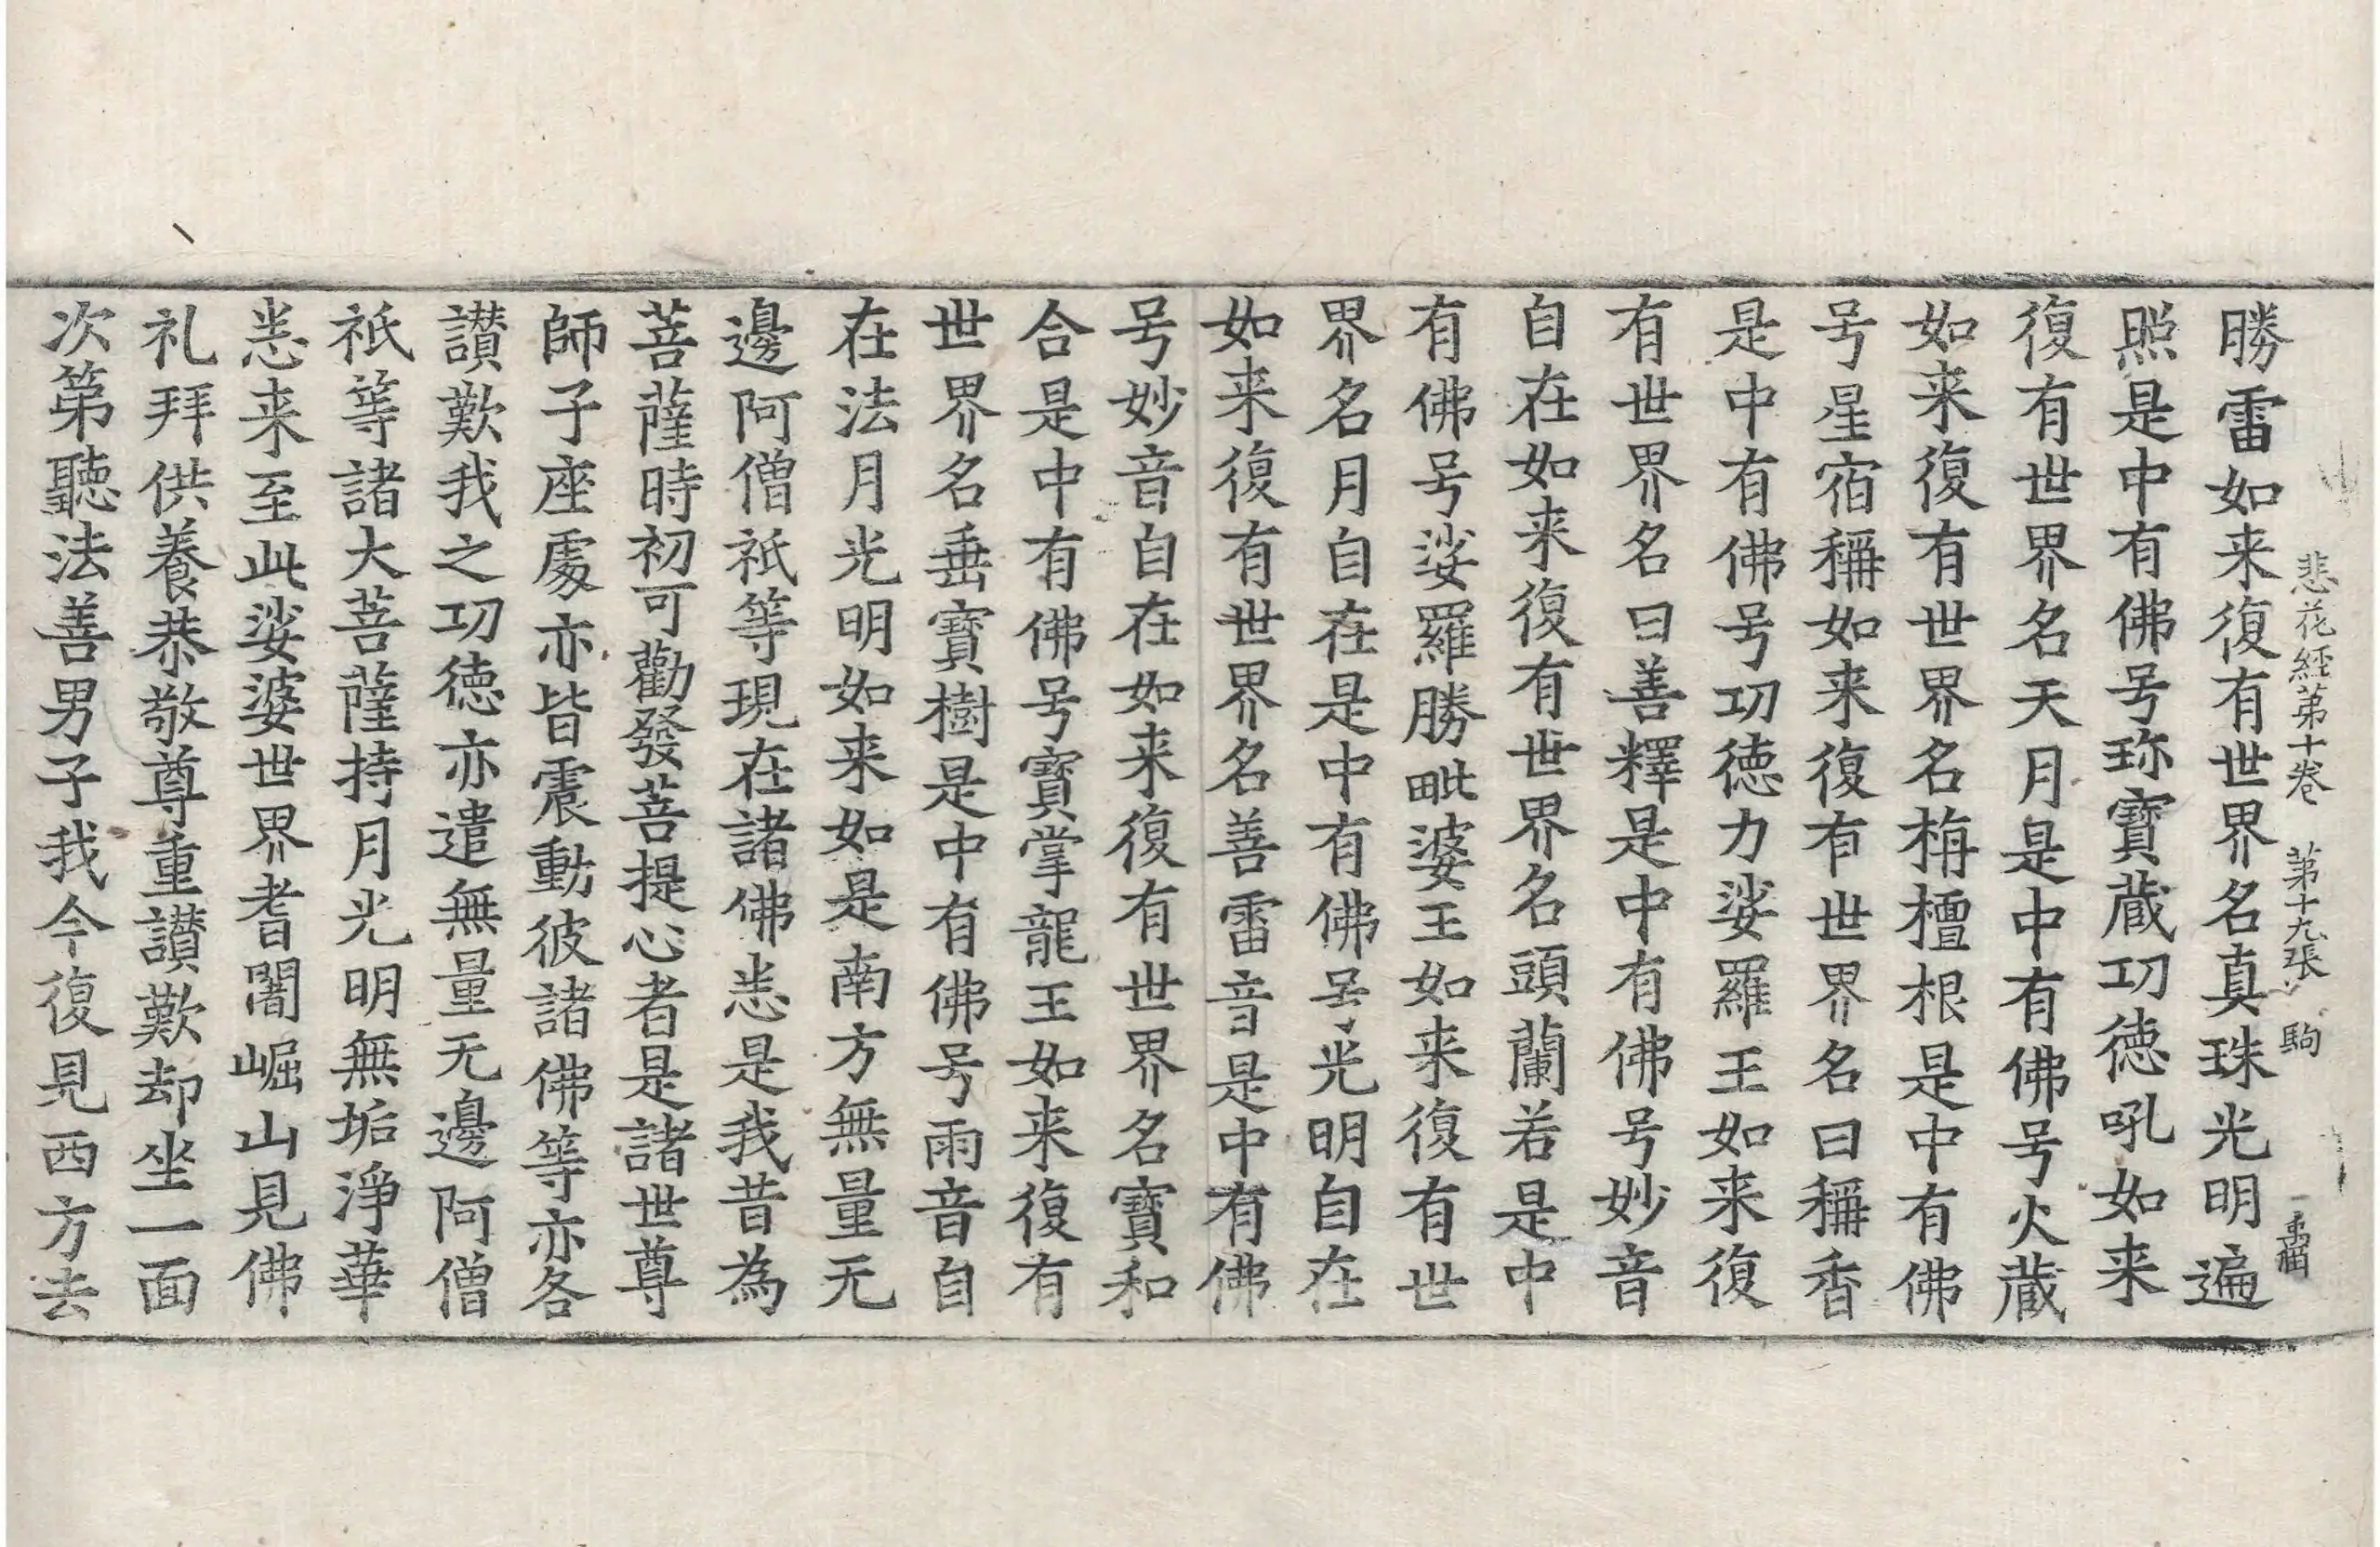 悲花經第十卷 第十九張 駒
勝雷如来復有世界名真珠光明遍
照是中有佛号珎寶蔵功徳吼如来
復有世界名天月是中有佛号火蔵
如来復有世界名栴檀根是中有佛
号星宿稱如来復有世界名曰稱香
是中有佛号功徳力娑羅王如来復
有世界名曰善釋是中有佛号妙音
自在如来復有世界名頭蘭若是中
有佛号娑羅勝毗婆王如来復有世
界名月自在是中有佛号光明自在
如来復有世界名善雷音是中有佛
号妙音自在如来復有世界名寶和
合是中有佛号寶掌龍王如来復有
世界名垂寶樹是中有佛号雨音自
在法月光明如来如是南方無量无
邊阿僧祇等現在諸佛悉是我昔為
菩薩時初可勸發菩提心者是諸世尊
師子座處亦皆震動彼諸佛等亦各
讃歎我之功徳亦遣無量无邊阿僧
祇等諸大菩薩持月光明無垢淨華
悉来至此娑婆世界耆闍崛山見佛
礼拜供養恭敬尊重讃歎却坐一面
次第聽法善男子我今復見西方去